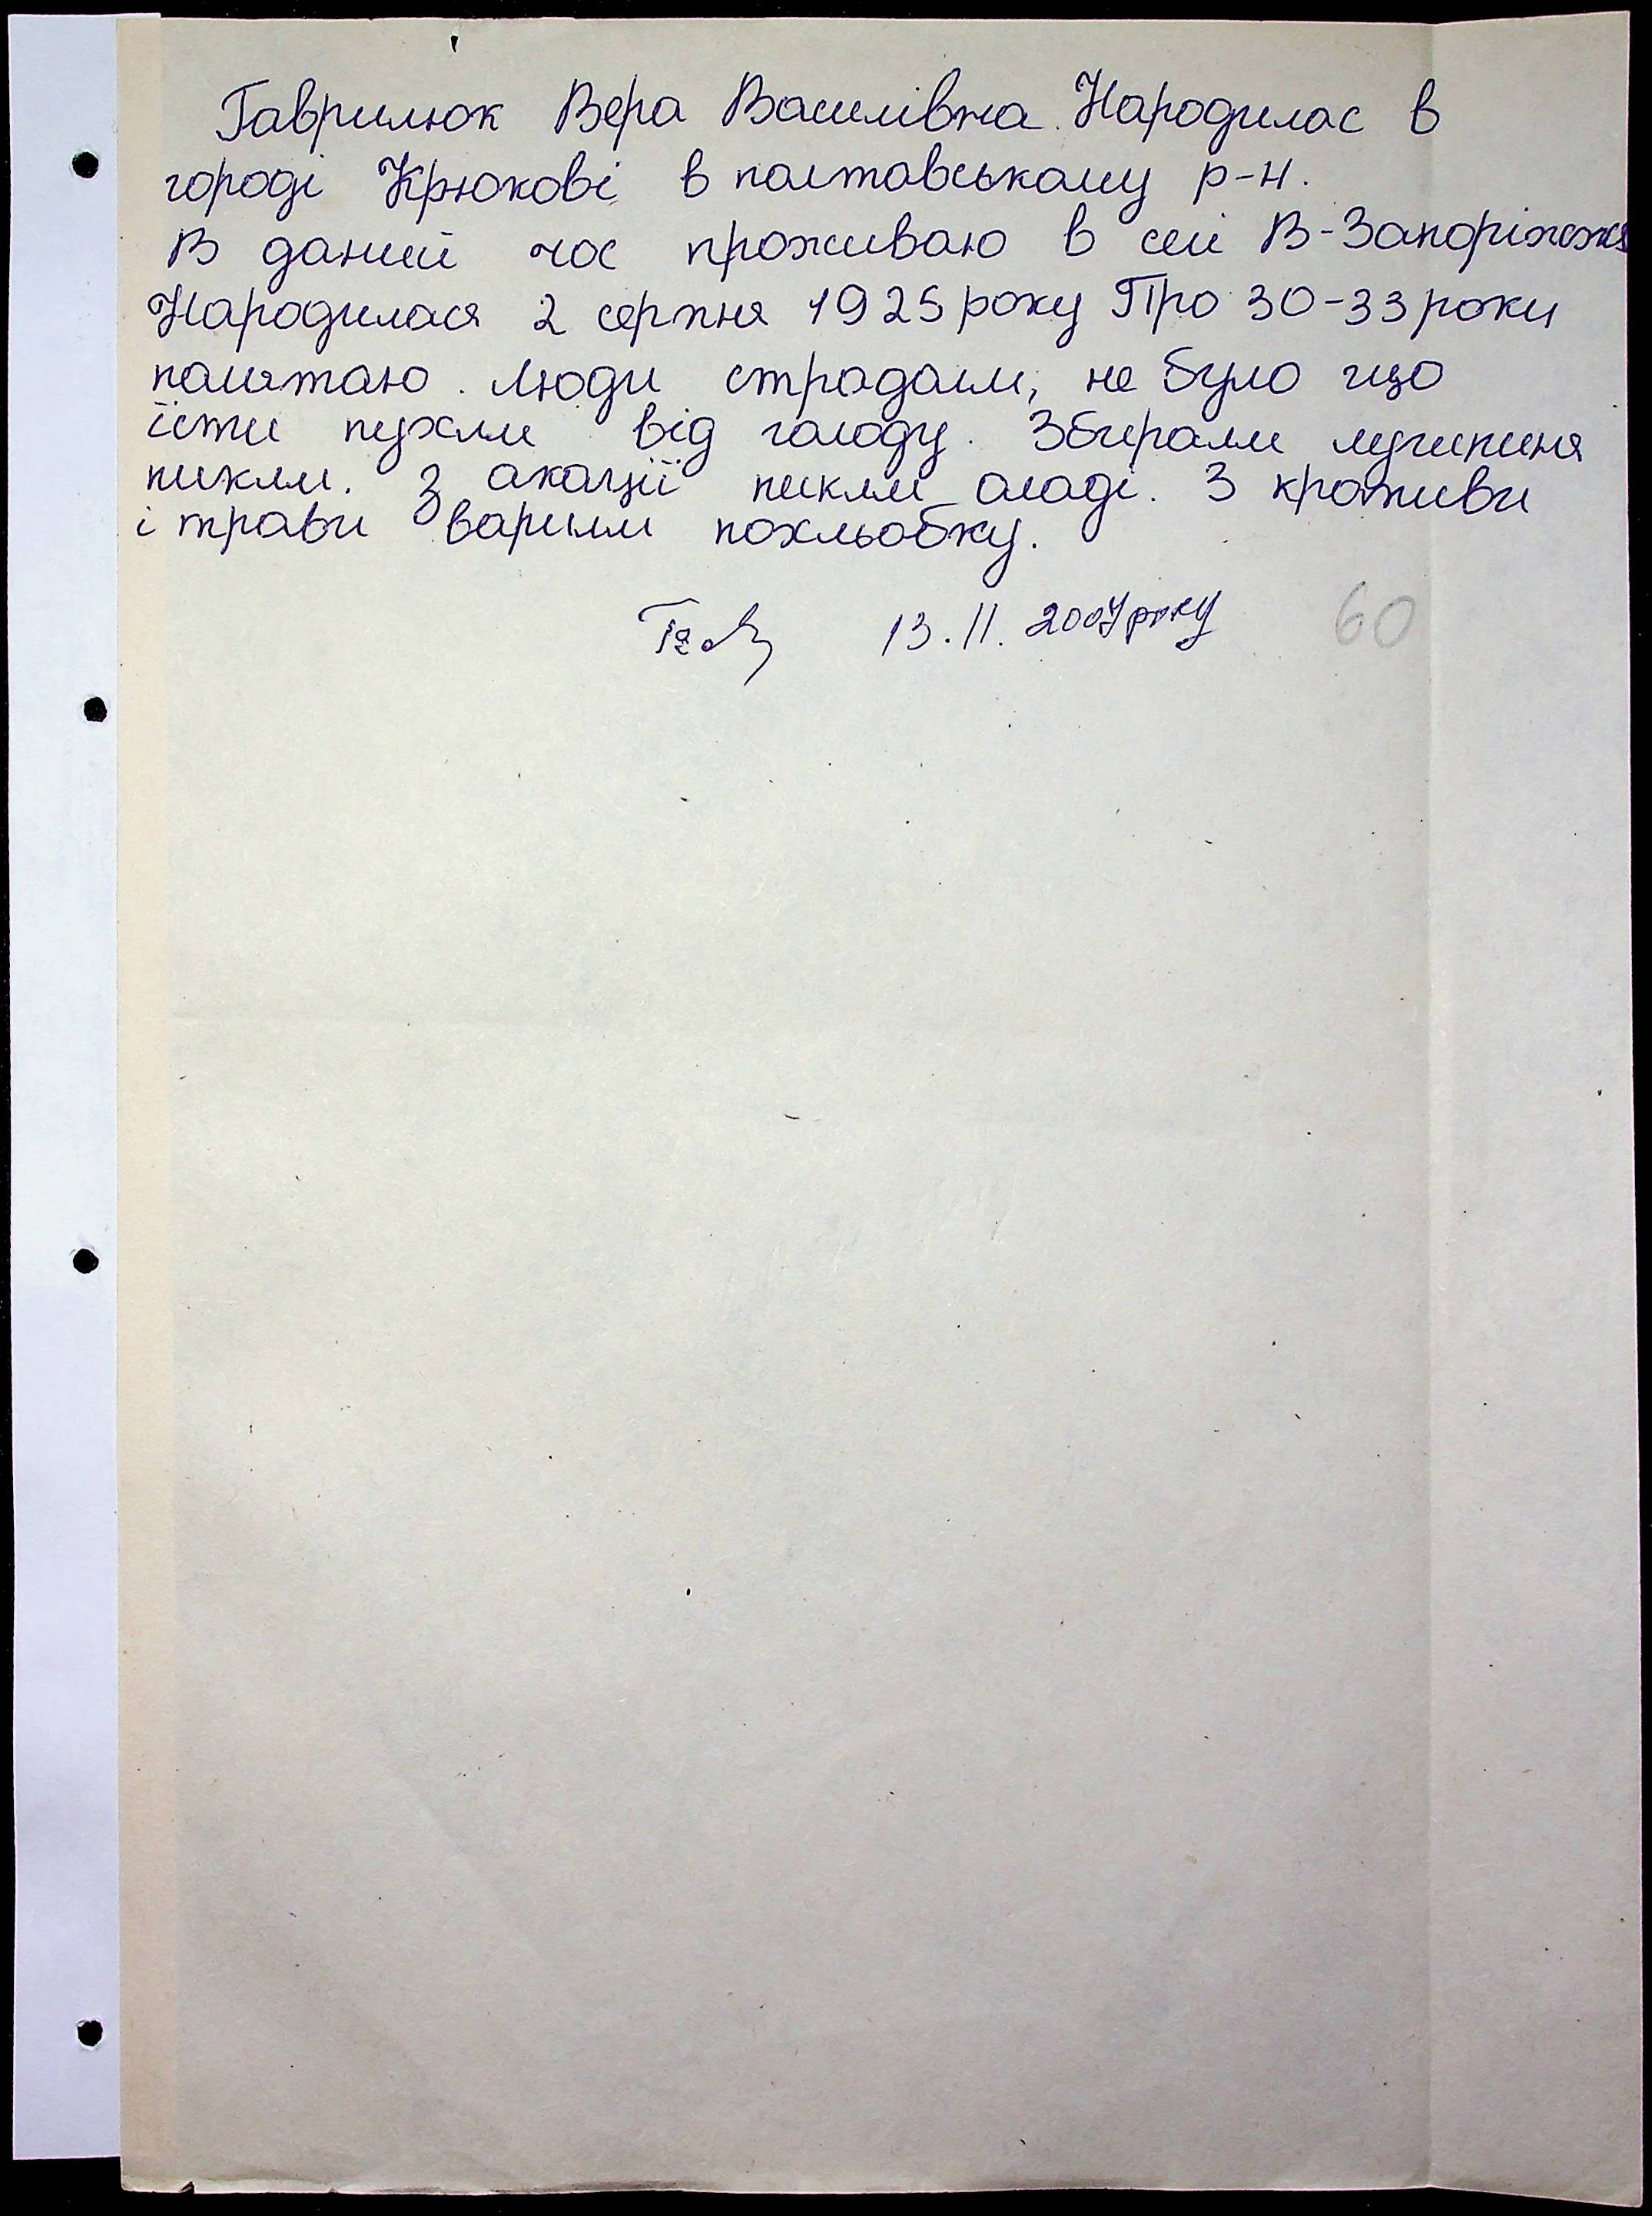 Гаврилюк Вера Василівна. Народилас в
городі Крюкові в полтавському р-н.
В даний час проживаю в селі В-Запоріжжя
Народилася 2 серпня 1925 року Про 30-33 роки
памятаю. Люди страдали, не було що
їсти пухли від голоду. Збирали лушпиня
пикли. З акації пикли оладі. З кропиви
і трави варили похльобку.
13.11.2007 року
60